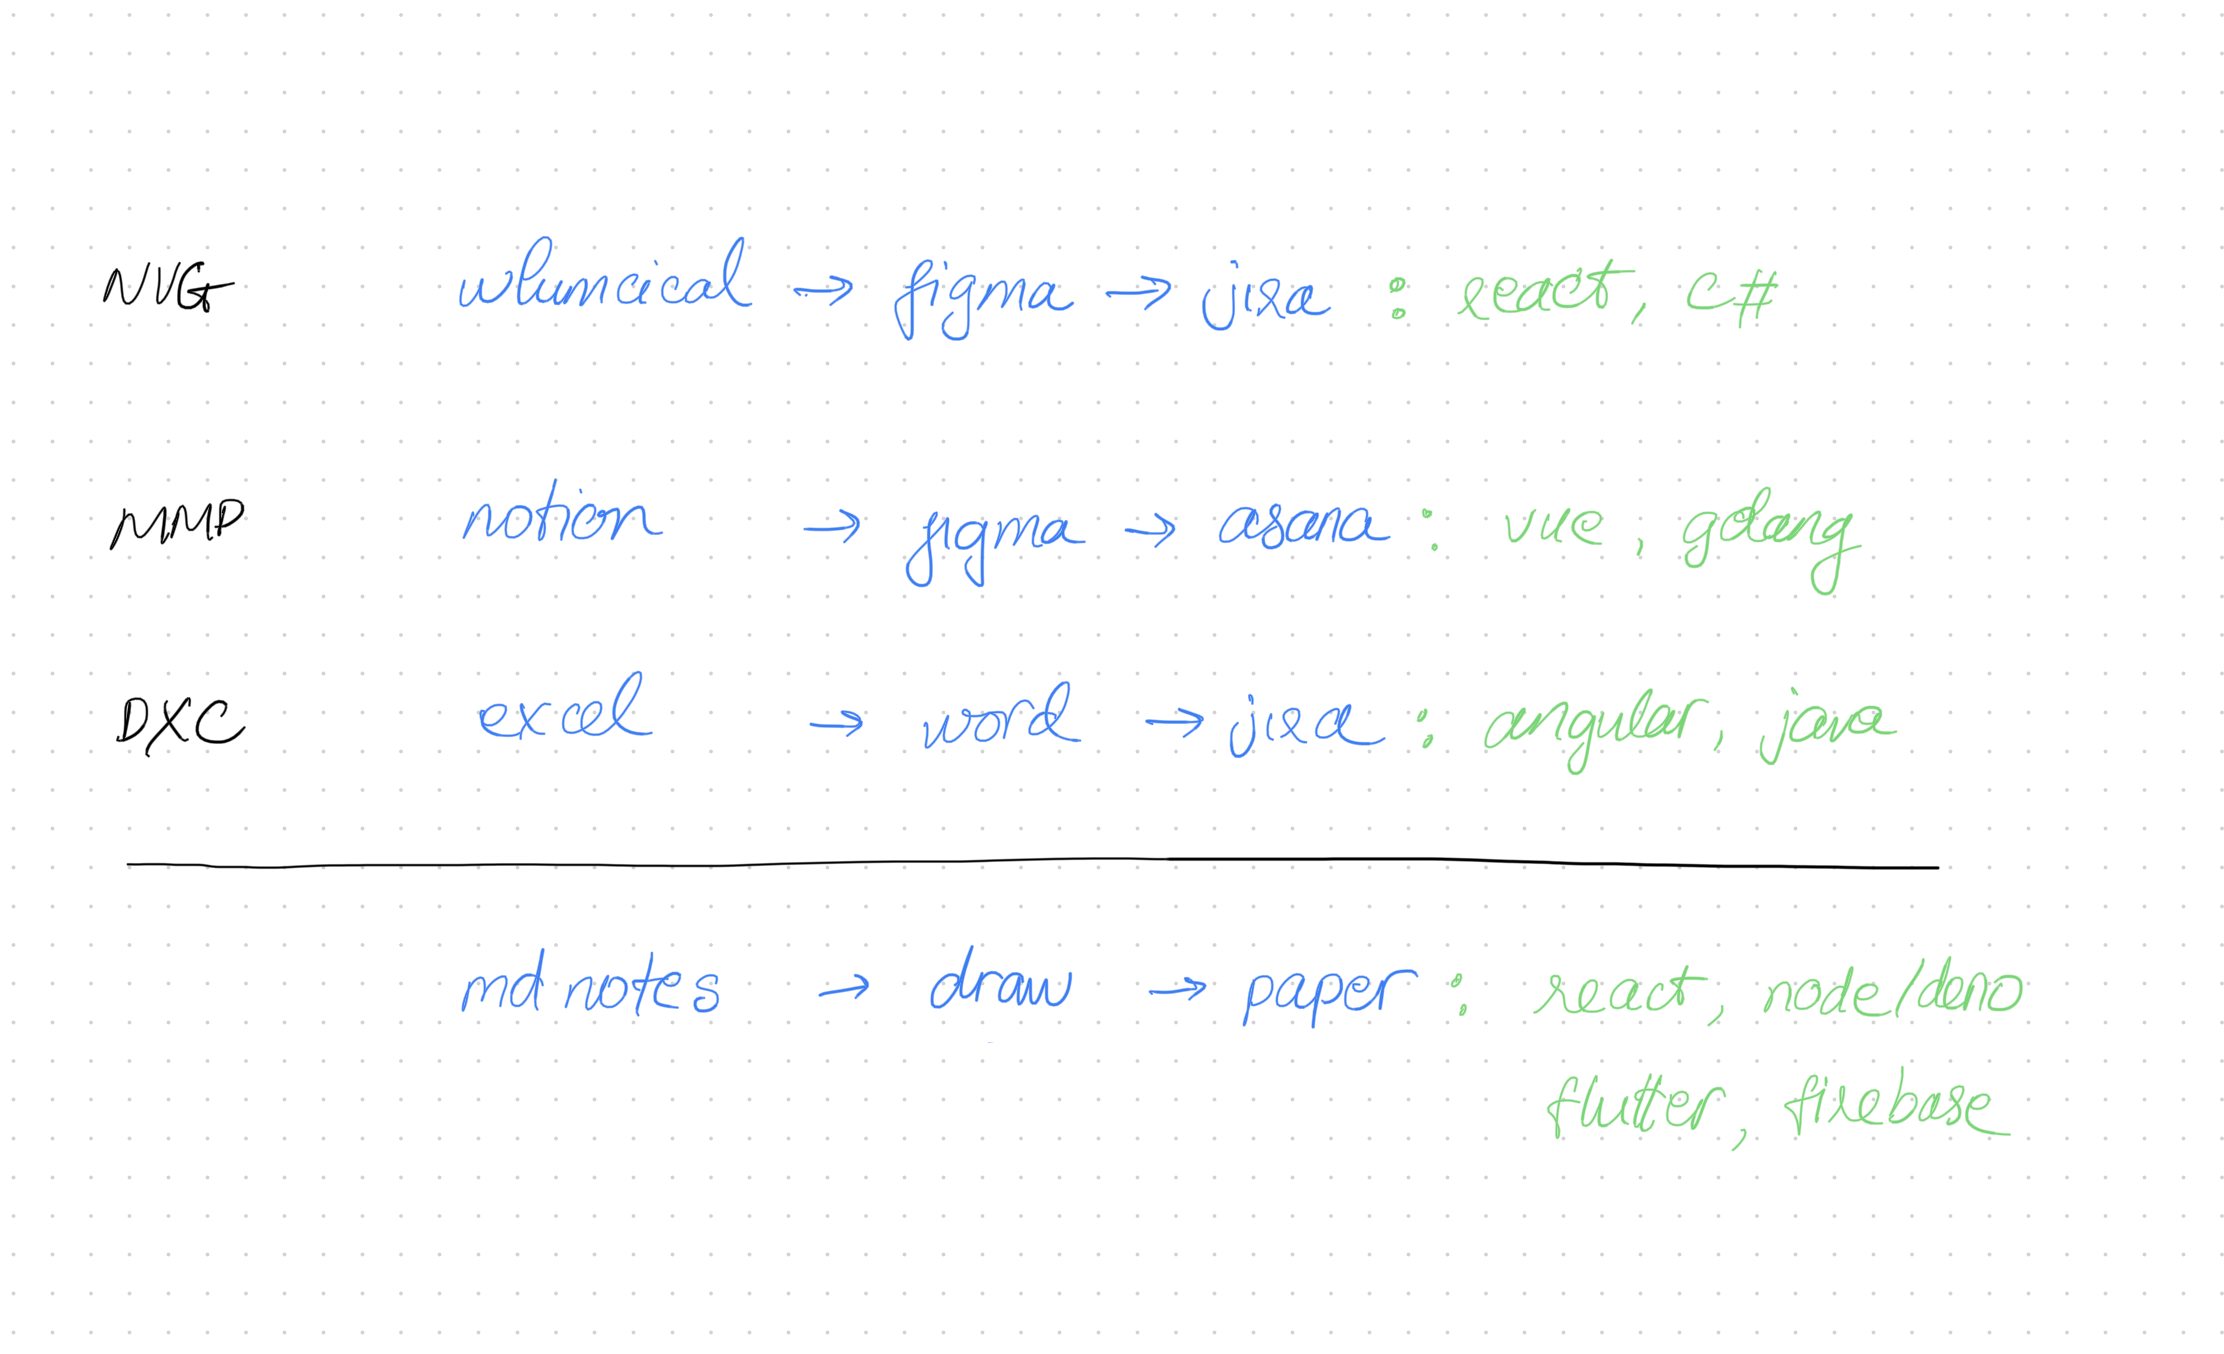 NVG whimcical → figma → jira : react, c#
MMP notion → figma → asana : vue, golang
DXC excel → word → jira : angular, java
md notes → draw → paper : react, node/deno
flutter, firebase